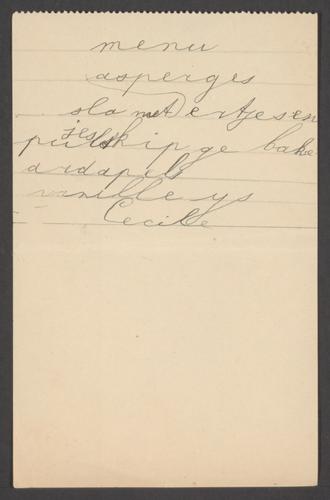 menu
asperges
sla met ertjes en
puls kip ge bake
ardapils
vanille ys
Cecile